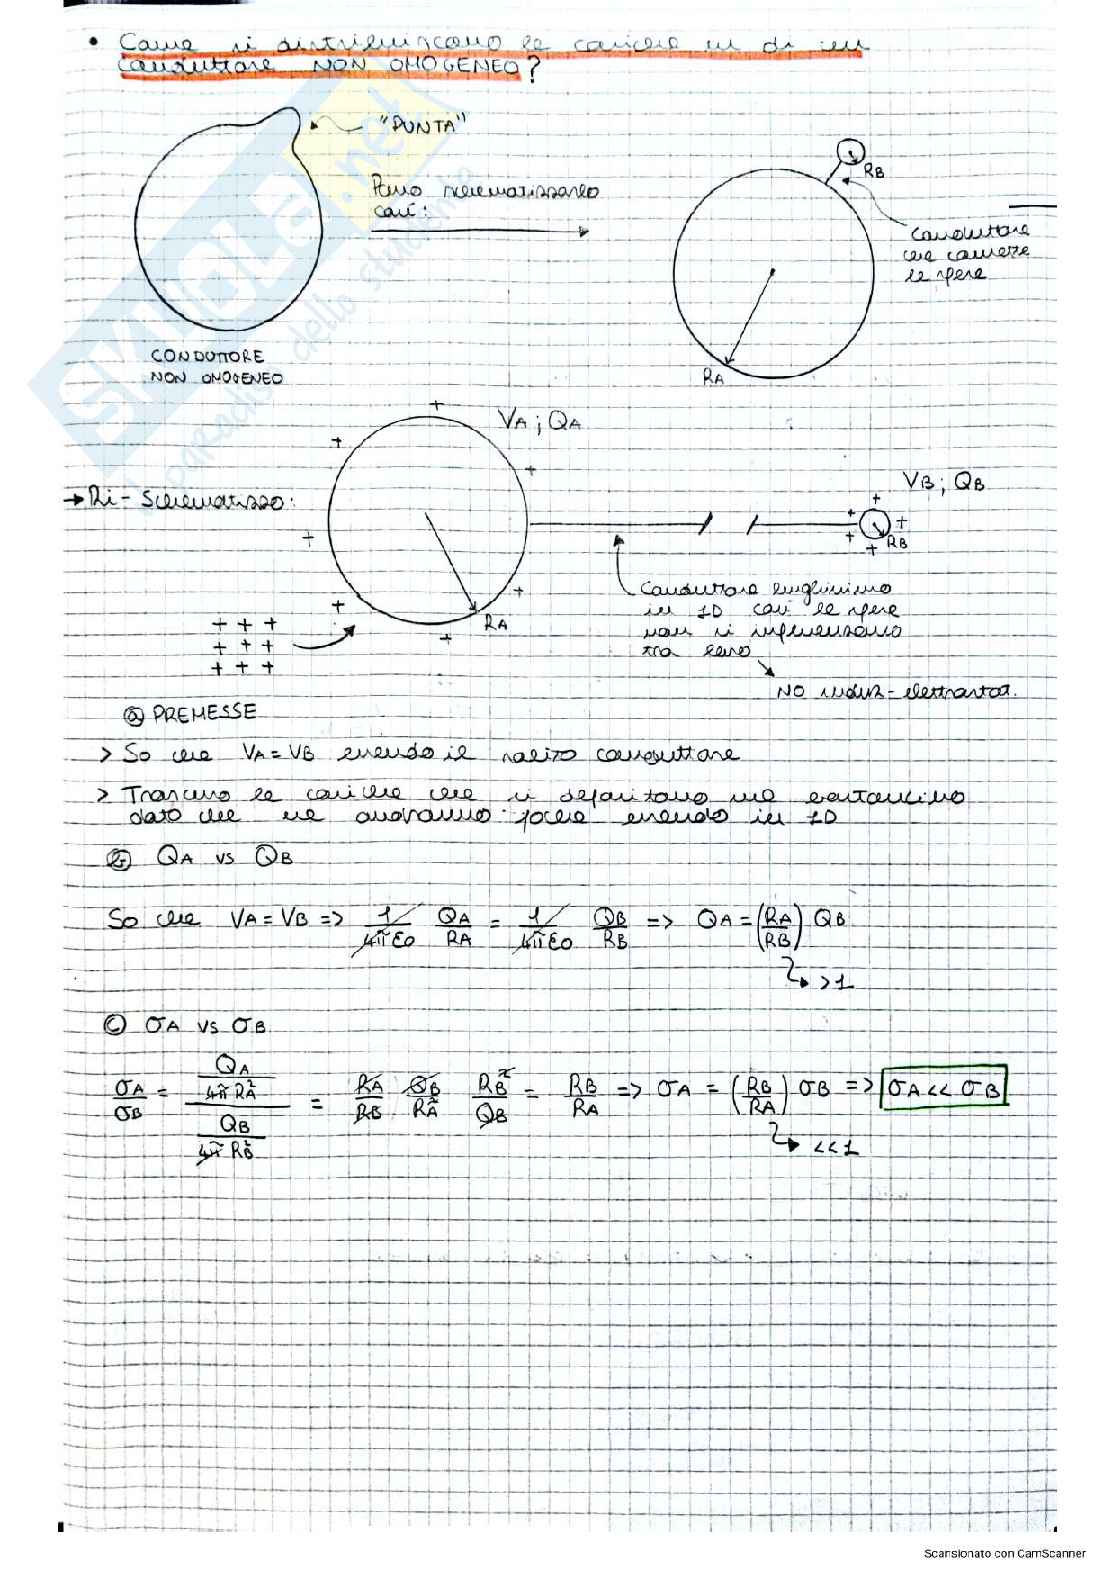 • Come si distribuiscono le cariche su di un
conduttore NON OMOGENEO?
"PUNTA"
RB
Posso schematizzarlo
così:
conduttore
che connette
le sfere
CONDUTTORE
NON OMOGENEO
RA
VA ; QA
VB ; QB
→ Ri-schematizzo:
RB
Conduttore lunghissimo
in 1D così le sfere
non si influenzano
tra loro
RA
+ + +
+ + +
+ + +
NO induz-elettrostat.
ⓐ PREMESSE
> So che VA = VB essendo il solito conduttore
> Trascuro le cariche che si depositano nel
dato che ne andranno poche essendo in 1D
ⓑ QA vs QB
So che VA = VB => 1/4πεo QA/RA = 1/4πεo QB/RB => QA = (RA/RB) QB
>1
ⓒ σA vs σB
σA/σB = (QA/4πRA²)/(QB/4πRB²) = RA/RB QB/RA² RB²/QB = RB/RA => σA = (RB/RA) σB => σA << σB
<<1
SKUOLA.net
paradiso dello studente
Scansionato con CamScanner